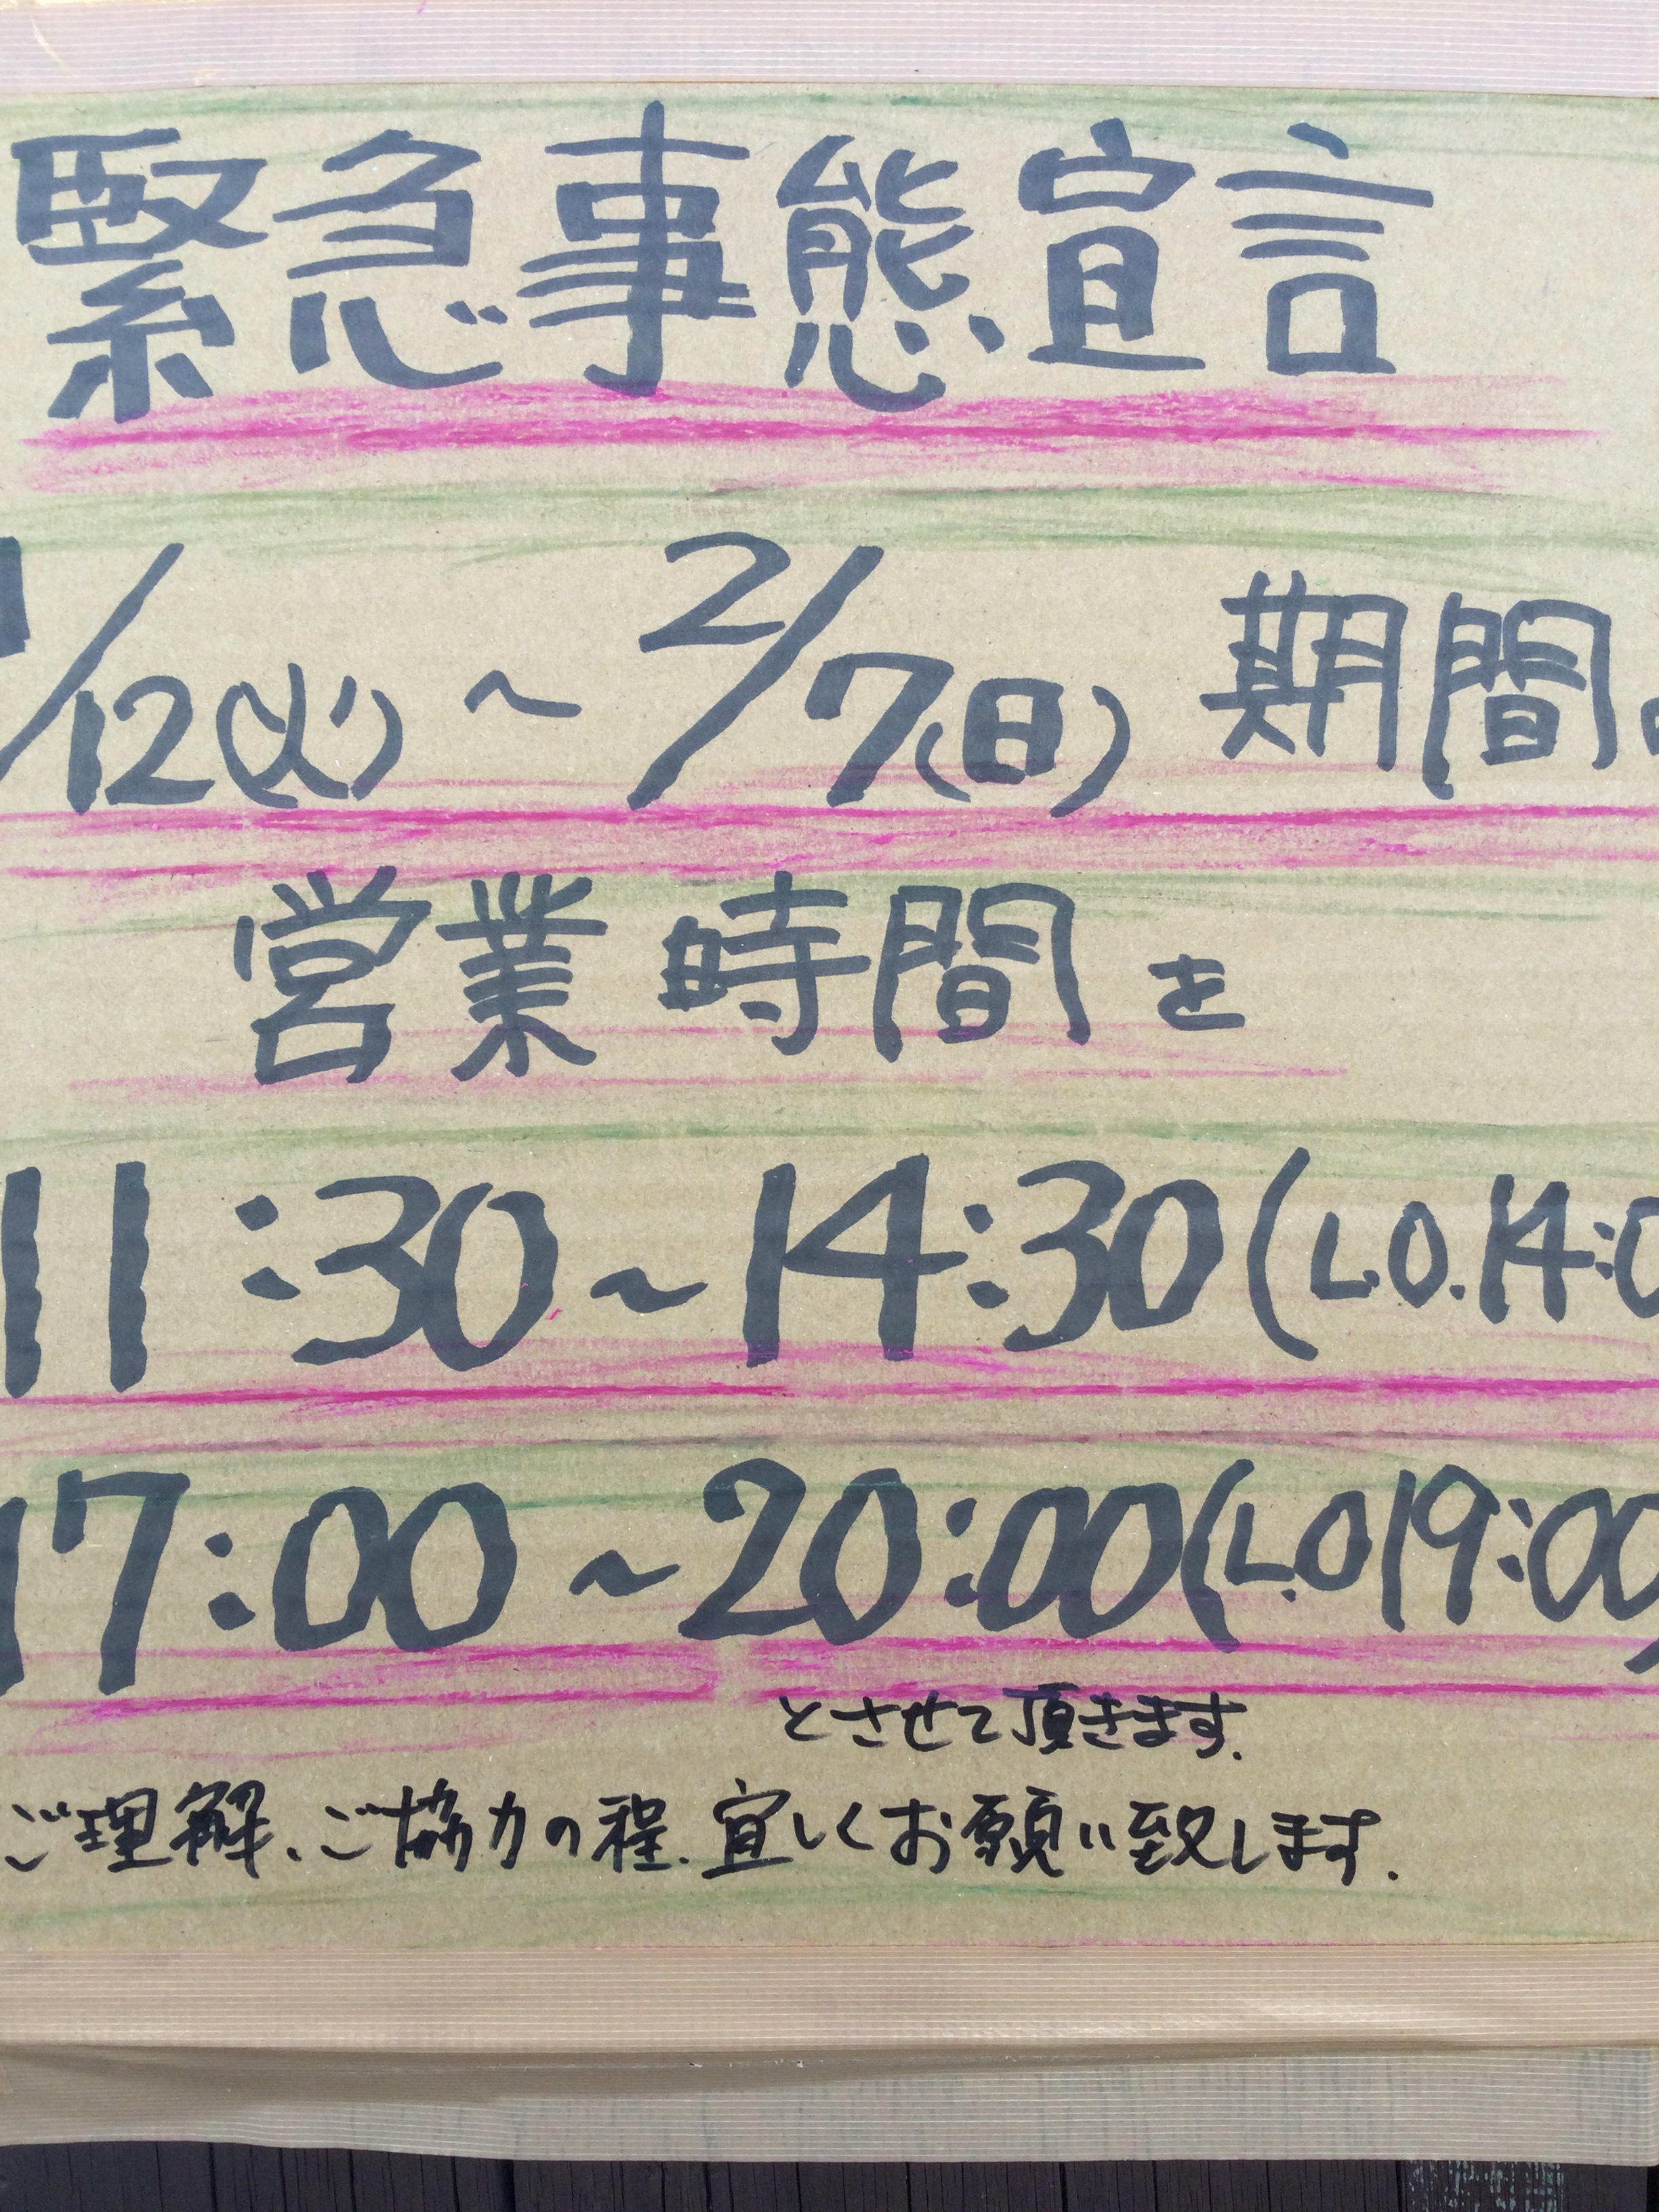 緊急事態宣言
1/12(火)～2/7(日)期間
営業時間を
11:30～14:30(L.O.14:0
17:00～20:00(L.O19:00)
とさせて頂きます.
ご理解、ご協力の程.宜しくお願い致します.